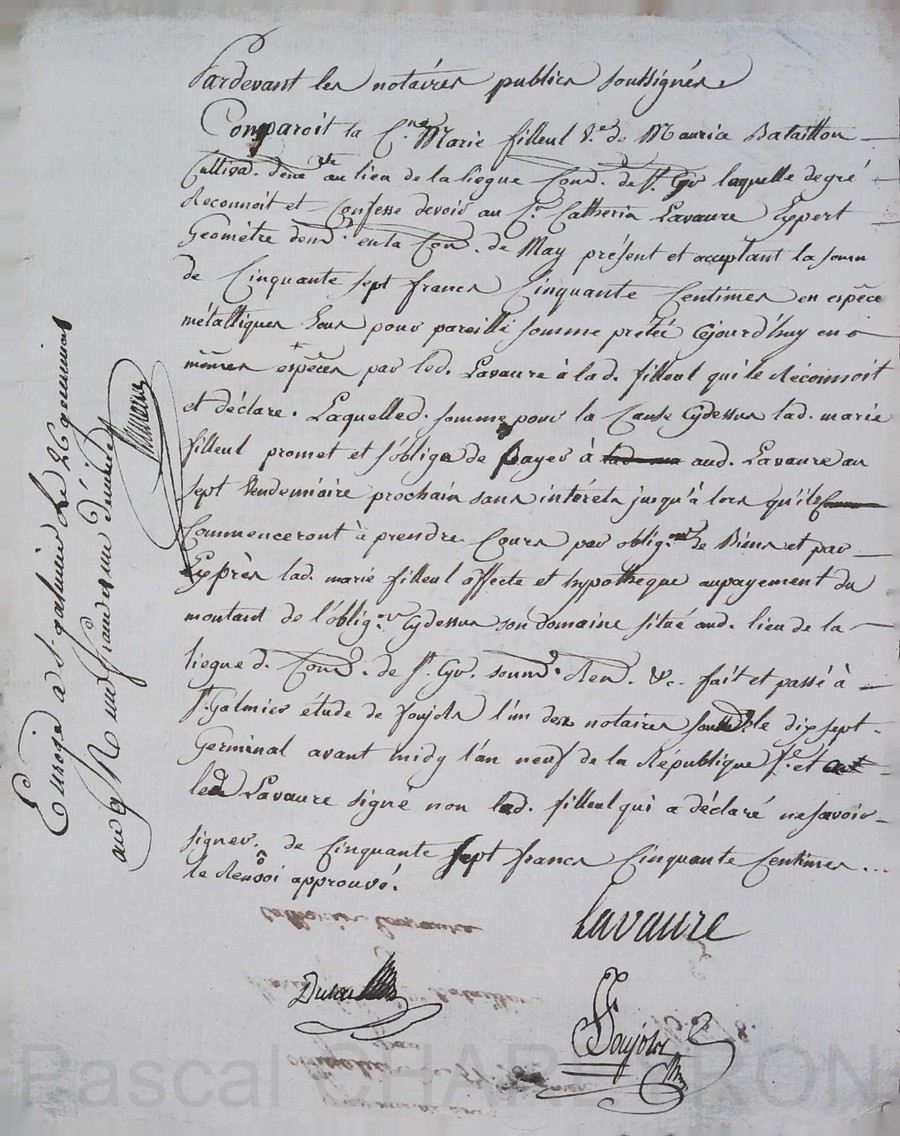 Pardevant les notaires publics soussignés
Comparoit la C.ne Marie filleul V.e de Mauria Bataillon
Cultiva. deme au lieu de la liegue Com. de St. Cyr laquelle de gré
Reconnoit et Confesse devoir au C.n Catherin Lavaure Expert
Geomètre dem.t en la Com. de May présent et acceptant la somm
de Cinquante sept francs Cinquante Centimes en espêce
métalliques Sous pour pareille somme pretée cejourd'huy en
mêmes espêces par led. Lavaure à lad. filleul qui le Réconnoit
et déclare. Laquelle d. somme pour la Cause Cydessus lad. marie
filleul promet et s'oblige de payer à aud. Lavaure au
sept Vendemiaire prochain sans intérêts jusqu'à lors qu'ils
Commenceront à prendre Cours par oblig.on de Biens et par
Exprès lad. marie filleul affecte et hypothèque au payement du
montant de l'oblig.on Cydessus son domaine situé aud. lieu de la
liegue d. Com. de St. Cyr. soum. Ren. &c. fait et passé à
St. Galmier étude de Foujols l'un des notaires souss. le dix sept
Germinal avant midy l'an neuf de la République f.se et
led Lavaure signé non lad. filleul qui a déclaré ne savoir
signer. de Cinquante sept francs Cinquante Centimes ...
le Renvoi approuvé.
Lavaure
Foujols
Enregé à St. galmier le 26 germinal
an 9 R un franc
Pascal CHAMBRON